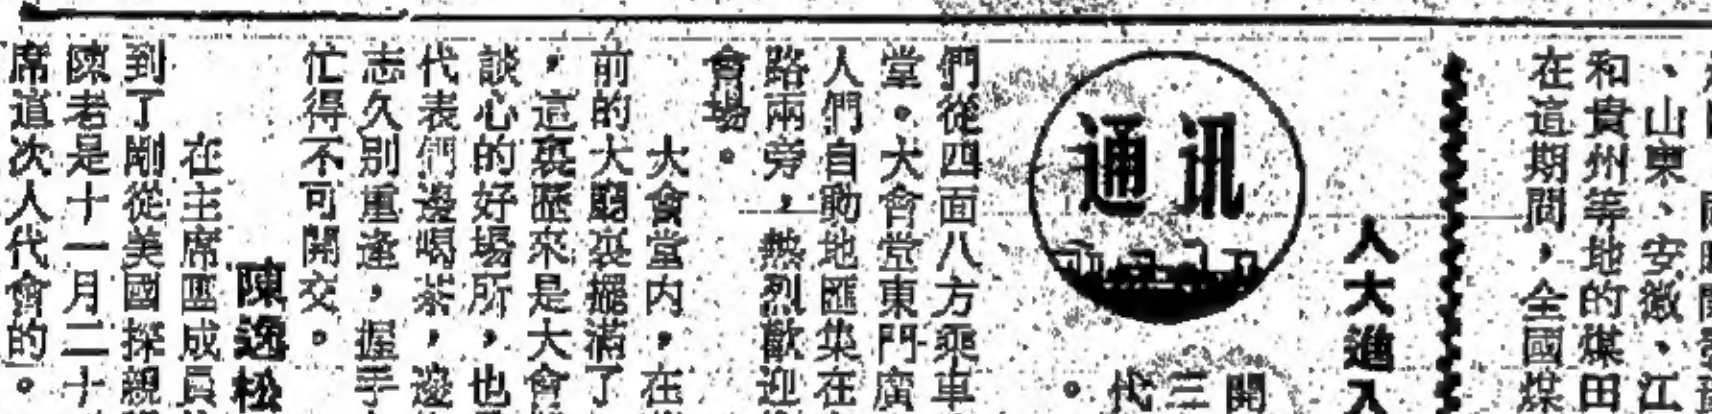 、山東、安徽、江
和貴州等地的煤田
在這期間，全國煤
人大進入
開
三
代。
通讯
們從四面八方乘車
堂。大會堂東門廣
人們自動地匯集在
路兩旁，熱烈歡迎
會場。
大會堂内，在
前的大廳裏擺滿了
，這裏歷來是大會
談心的好場所，也
代表們邊喝茶，邊
志久別重逢，握手
忙得不可開交。
陳逸松
在主席團成員
到了剛從美國探親
陳者是十一月二十
席這次人代會的。